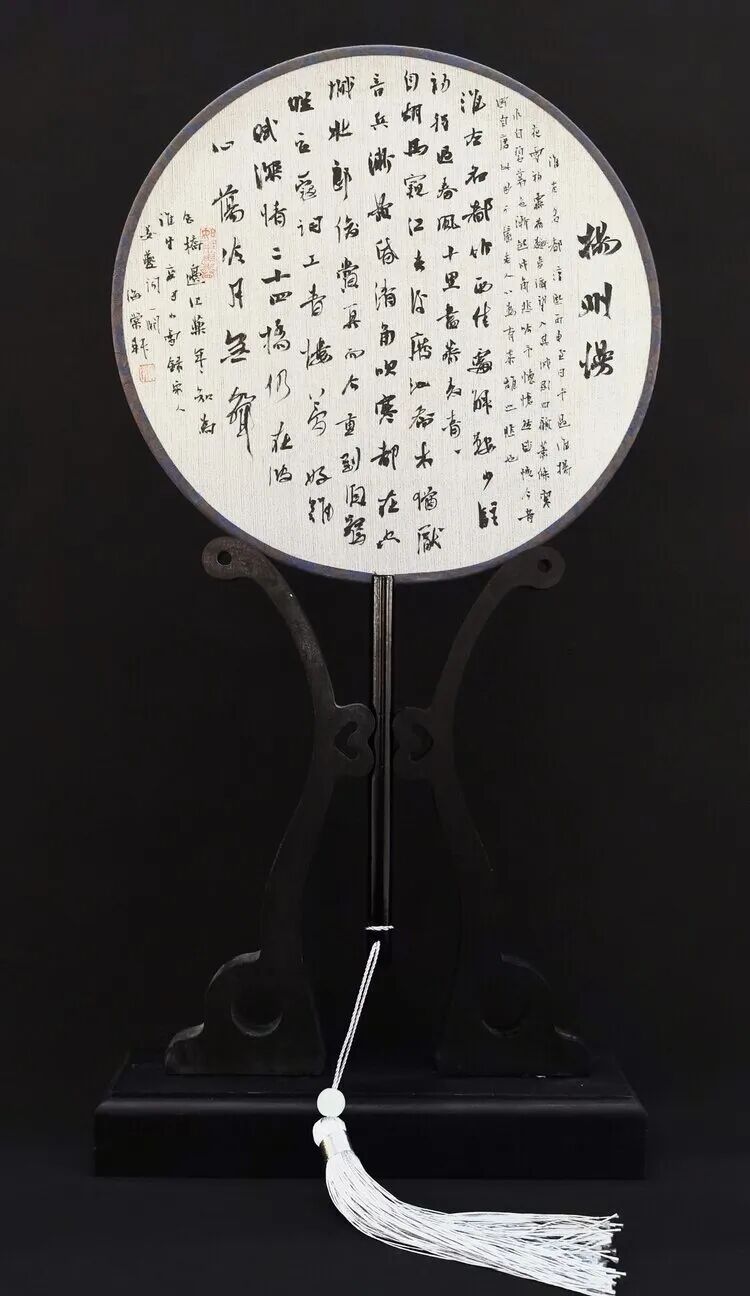 揚州慢
淮左名都淳熙丙申至日予過維揚
夜雪初霽薺麥彌望入其城則四顧蕭條寒
水自碧暮色漸起戍角悲吟予懷愴然感慨今昔
因自度此曲千巖老人以為有黍離之悲也
淮左名都竹西佳處解鞍少駐
初程過春風十里盡薺麥青
自胡馬窺江去後廢池喬木猶厭
言兵漸黃昏清角吹寒都在空
城杜郎俊賞算而今重到須驚
縱豆蔻詞工青樓夢好難
賦深情二十四橋仍在波
心蕩冷月無聲
念橋邊紅藥年年知為
誰生庚子小雪錄宋人
姜夔詞一闋
海棠軒